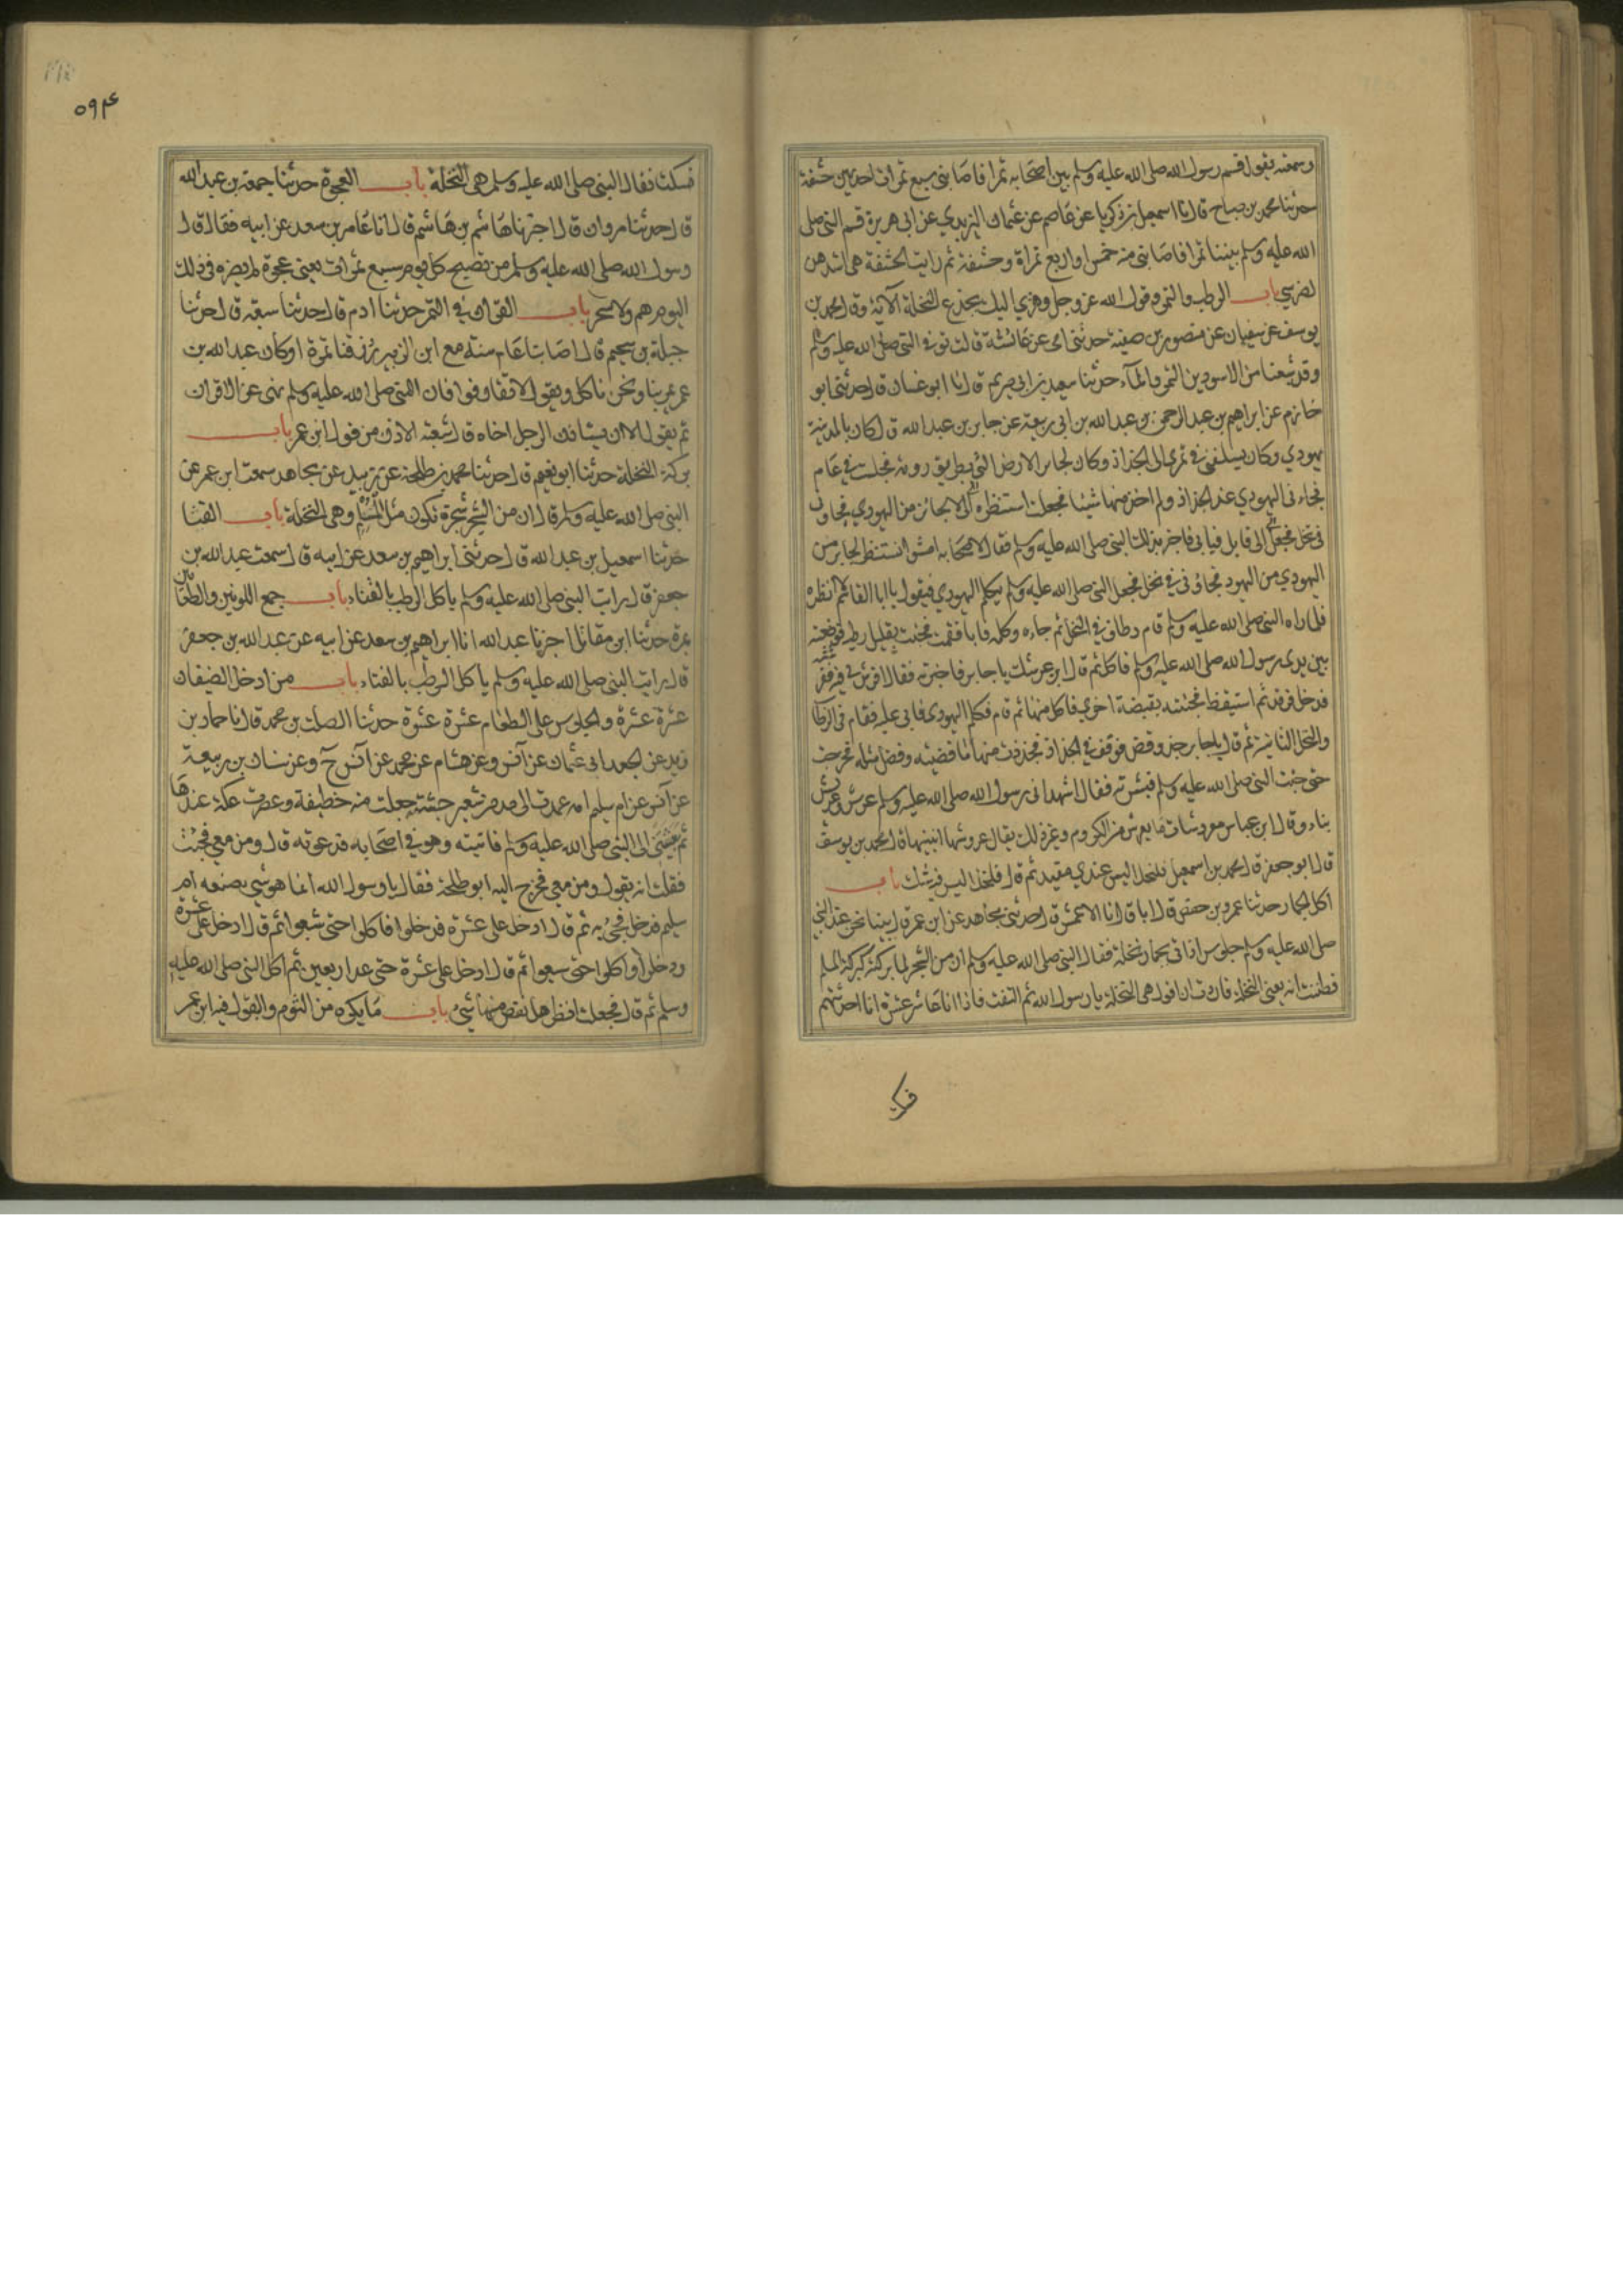 وسمعته يقول قسم رسول الله صلى الله عليه وسلم بين اصحابه تمرا فاصابنى سبع تمرات احديهن حشفة
حدثنا محمد بن صباح قال انا اسمعيل بن زكريا عن عاصم عن عثمان النهدي عن ابى هريرة قسم النبى صلى
الله عليه وسلم بيننا تمرا فاصابنى منه خمس اربع تمراة وحشفة ثم رايت الحشفة هى اشدهن
لضرسي باب الرطب والتمر وقول الله عز وجل وهزي اليك بجذع النخلة الآية وقال محمد بن
يوسف عن سفيان عن منصور بن صفية حدثتنى امى عن عائشة قالت توفى النبى صلى الله عليه وسلم
وقد شبعنا من الاسودين التمر والمآء حدثنا سعيد بن ابى مريم قال انا ابو غسان قال حدثنى ابو
حازم عن ابراهيم بن عبد الرحمن بن عبد الله بن ابى ربيعة عن جابر بن عبد الله قال كان بالمدينة
يهودي وكان يسلفنى فى تمرى الى الجذاذ وكان لجابر الارض التى بطريق رومة فجلست فى عام
فجاءنى اليهودي عند الجذاذ ولم اجذ منها شيئا فجعلت استنظره الى
قابل فيابى فاخبر بذلك النبى صلى الله عليه وسلم فقال لاصحابه امشوا نستنظر لجابر من
اليهودي فجاؤنى فى نخلى فجعل النبى صلى الله عليه وسلم يكلم اليهودي فيقول يا ابا القاسم لا انظره
فلما راه النبى صلى الله عليه وسلم قام فطاف فى النخل ثم جاءه وكلمه فابا فقمت فجئت بقليل رطب فوضعته
بين يدى رسول الله صلى الله عليه وسلم فاكل ثم قال اين عريشك يا جابر فاخبرته فقال افرش لى فيه ففرشته
فدخل فرقد ثم استيقظ فجئته بقبضة اخرى فاكل منها ثم قام فكلم اليهودى فابى عليه فقام فى الرطاب
والنخل الثانية ثم قال يا جابر جذ واقض فوقف فى الجذاذ فجذذت منها ما قضيته وفضل مثله فخرجت
حتى جئت النبى صلى الله عليه وسلم فبشرته فقال اشهد انى رسول الله صلى الله عليه وسلم عرش وعريش
بناء وقال ابن عباس معروشات ما يعرش من الكروم وغير ذلك يقال عروشها ابنيتها قال محمد بن يوسف
قال ابو جعفر قال محمد بن اسمعيل فنخلا ليس عندي مقيد ثم قال فنخلا ليس فيه شك باب
اكل الجمار حدثنا عمر بن حفص قال انا الاعمش قال حدثنى مجاهد عن ابن عمر قال بينا نحن عند النبى
صلى الله عليه وسلم جلوس اذا اتى بجمار نخلة فقال النبى صلى الله عليه وسلم ان من الشجر لما بركته كبركة المسلم
فظننت انه يعنى النخلة فاردت ان اقول هى النخلة يا رسول الله ثم التفت فاذا انا عاشر عشرة انا احدثهم
فسكت
٥٩٤
فسكت فقال النبى صلى الله عليه وسلم هى النخلة باب العجوة حدثنا جمعة بن عبد الله
قال حدثنا مروان قال اخبرنا هاشم بن هاشم قال انا عامر بن سعد عن ابيه فقال قال
رسول الله صلى الله عليه وسلم من تصبح كل يوم سبع تمرات يعنى عجوة لم يضره فى ذلك
اليوم سم ولا سحر باب القران فى التمر حدثنا ادم قال حدثنا شعبة قال حدثنا
جبلة بن سحيم قال اصابنا عام سنة مع ابن الزبير رزقنا تمرة وكان عبد الله بن
عمر يمر بنا ونحن ناكل ويقول لا تقارنوا فان النبى صلى الله عليه وسلم نهى عن الاقران
ثم يقول الا ان يستاذن الرجل اخاه قال شعبة الاذن من قول ابن عمر باب
بركة النخلة حدثنا ابو نعيم قال حدثنا محمد بن طلحة عن زبيد عن مجاهد سمعت ابن عمر عن
النبى صلى الله عليه وسلم قال ان من الشجر شجرة تكون مثل المسلم وهى النخلة باب القثا
حدثنا اسمعيل بن عبد الله قال حدثنى ابراهيم بن سعد عن ابيه قال سمعت عبد الله بن
جعفر قال رايت النبى صلى الله عليه وسلم ياكل الرطب بالقثاء باب جمع اللونين والطعامين
بمرة حدثنا ابن مقاتل اخبرنا عبد الله انا ابراهيم بن سعد عن ابيه عن عبد الله بن جعفر
قال رايت النبى صلى الله عليه وسلم ياكل الرطب بالقثاء باب من ادخل الضيفان
عشرة عشرة والجلوس على الطعام عشرة عشرة حدثنا الصلت بن محمد قال انا حماد بن
زيد عن الجعد ابى عثمان عن انس وعن هشام عن محمد عن انس ح وعن سنان بن ربيعة
عن انس عن ام سليم امه عمدت الى مد من شعير جشته جعلت منه خطيفة وعصرت عكة عندها
ثم بعثتنى الى النبى صلى الله عليه وسلم فاتيته وهو فى اصحابه فدعوته قال ومن معى فجئت
فقلت انه يقول ومن معى فخرج اليه ابو طلحة فقال يا رسول الله انما هو شيئ صنعته ام
سليم فدخل فجئ به ثم قال ادخل على عشرة فدخلوا فاكلوا حتى شبعوا ثم قال ادخل على عشرة
ودخلوا واكلوا حتى شبعوا ثم قال ادخل على عشرة حتى عد اربعين ثم اكل النبى صلى الله عليه
وسلم ثم قال فجعلت انظر هل نقص منها شئ باب ما يكره من الثوم والبقول فيه ابن عمر